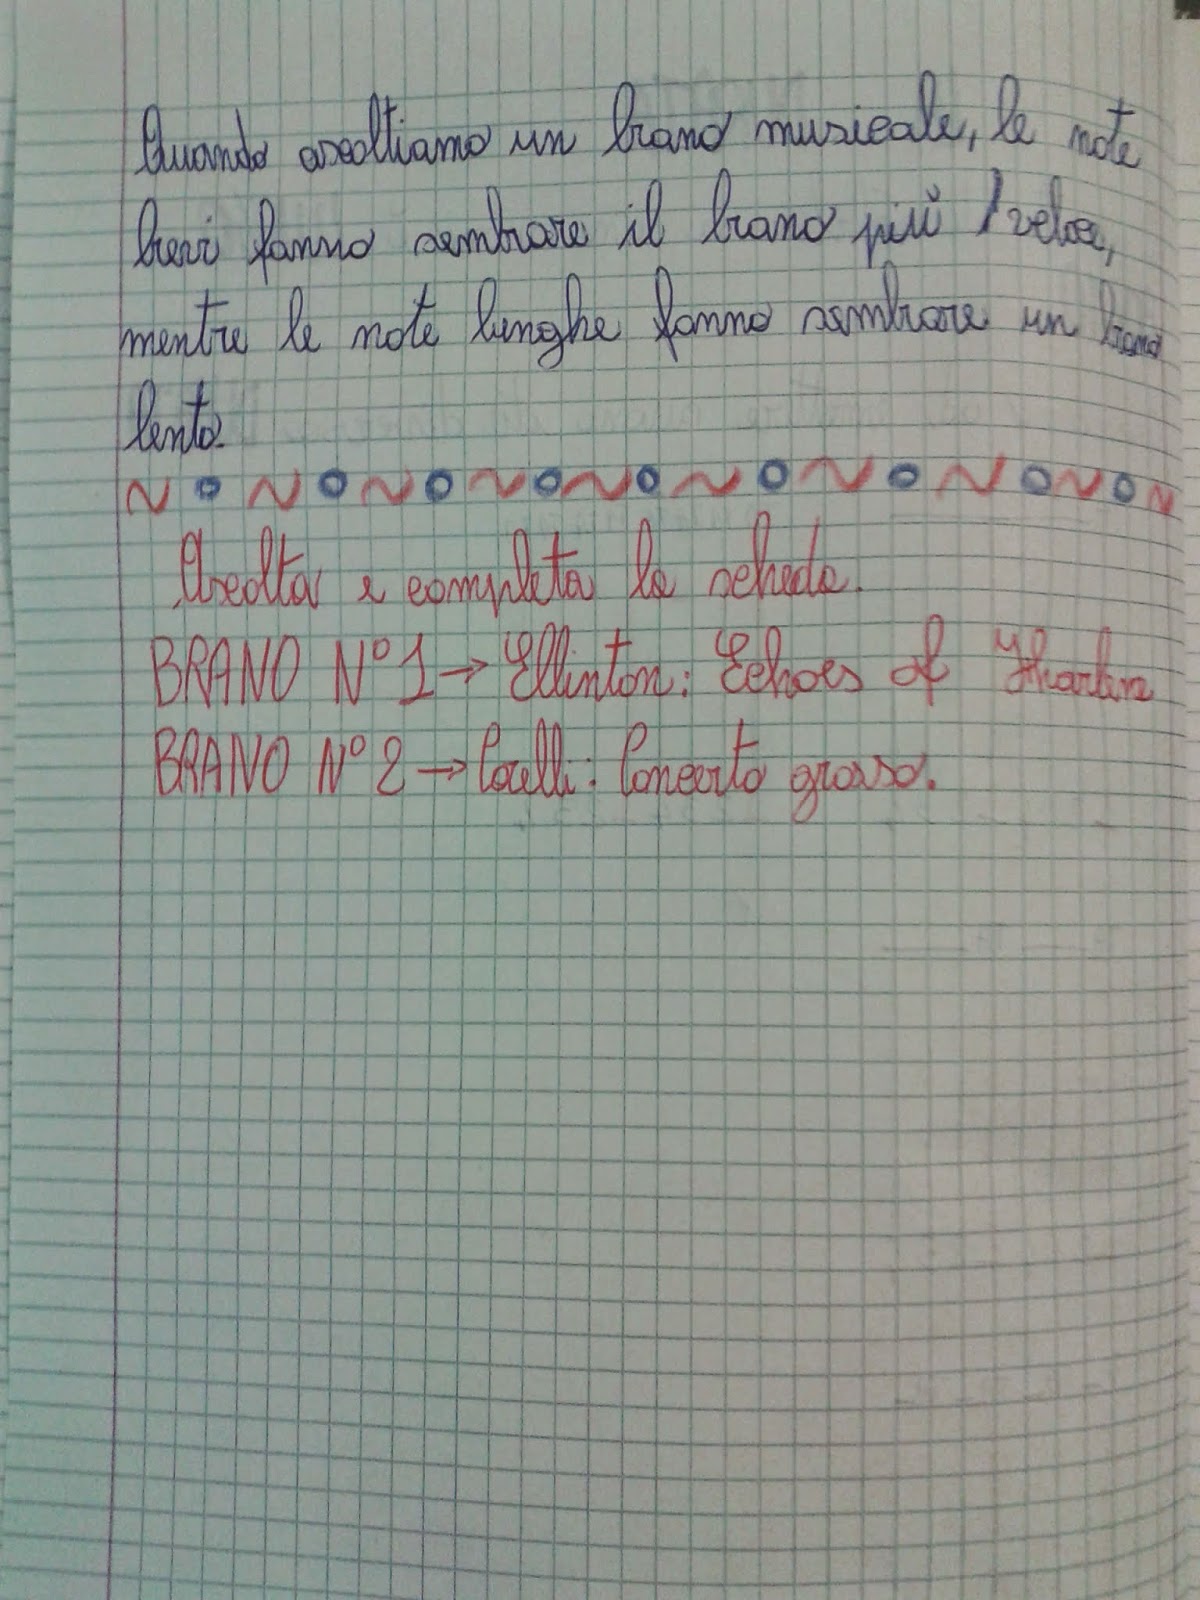 Quando ascoltiamo un brano musicale, le note
brevi fanno sembrare il brano più veloce,
mentre le note lunghe fanno sembrare un brano
lento.
Ascolta e completa la scheda.
BRANO N° 1 → Ellinton: Echoes of Harlem
BRANO N° 2 → Corelli: Concerto grosso.